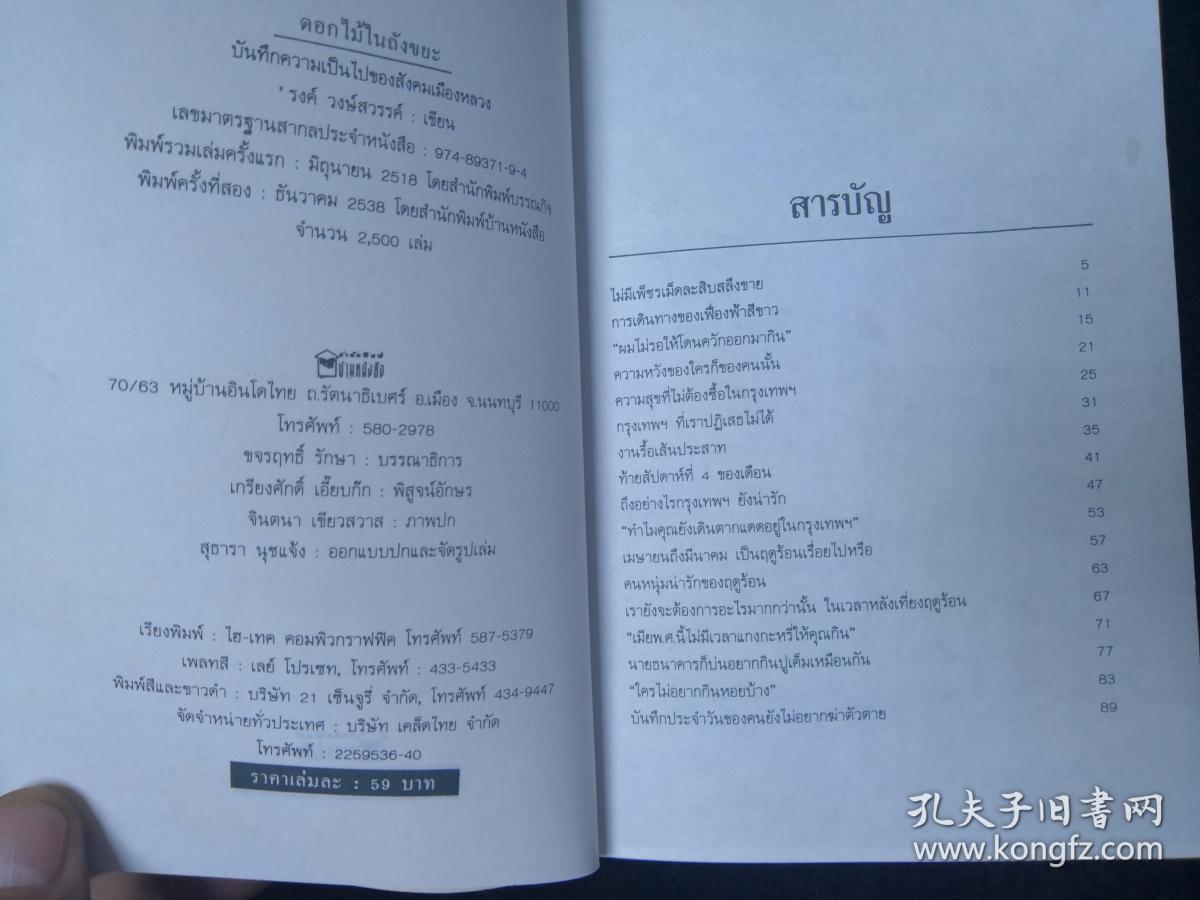 ดอกไม้ในถังขยะ
บันทึกความเป็นไปของสังคมเมืองหลวง
’รงค์ วงษ์สวรรค์ : เขียน
เลขมาตรฐานสากลประจำหนังสือ : 974-89371-9-4
พิมพ์รวมเล่มครั้งแรก : มิถุนายน 2518 โดยสำนักพิมพ์บรรณกิจ
พิมพ์ครั้งที่สอง : ธันวาคม 2538 โดยสำนักพิมพ์บ้านหนังสือ
จำนวน 2,500 เล่ม
บ้านหนังสือ
70/63 หมู่บ้านอินโดไทย ถ.รัตนาธิเบศร์ อ.เมือง จ.นนทบุรี 11000
โทรศัพท์ : 580-2978
ขจรฤทธิ์ รักษา : บรรณาธิการ
เกรียงศักดิ์ เอี๊ยบก๊ก : พิสูจน์อักษร
จินตนา เขียวสวาส : ภาพปก
สุธารา นุชแจ้ง : ออกแบบปกและจัดรูปเล่ม
เรียงพิมพ์ : ไฮ-เทค คอมพิวกราฟฟิค โทรศัพท์ 587-5379
เพลทสี : เลย์ โปรเซท, โทรศัพท์ : 433-5433
พิมพ์สีและขาวดำ : บริษัท 21 เซ็นจูรี่ จำกัด, โทรศัพท์ 434-9447
จัดจำหน่ายทั่วประเทศ : บริษัท เคล็ดไทย จำกัด
โทรศัพท์ : 2259536-40
ราคาเล่มละ : 59 บาท
สารบัญ
ไม่มีเพ็ชรเม็ดละสิบสลึงขาย 5
การเดินทางของเฟื่องฟ้าสีขาว 11
“ผมไม่รอให้โดนควักออกมากิน” 15
ความหวังของใครก็ของคนนั้น 21
ความสุขที่ไม่ต้องซื้อในกรุงเทพฯ 25
กรุงเทพฯ ที่เราปฏิเสธไม่ได้ 31
งานรื้อเส้นประสาท 35
ท้ายสัปดาห์ที่ 4 ของเดือน 41
ถึงอย่างไรกรุงเทพฯ ยังน่ารัก 47
“ทำไมคุณยังเดินตากแดดอยู่ในกรุงเทพฯ” 53
เมษายนถึงมีนาคม เป็นฤดูร้อนเรื่อยไปหรือ 57
คนหนุ่มน่ารักของฤดูร้อน 63
เรายังจะต้องการอะไรมากกว่านั้น ในเวลาหลังเที่ยงฤดูร้อน 67
“เมียพ.ศ.นี้ไม่มีเวลาแกงกะหรี่ให้คุณกิน” 71
นายธนาคารก็บ่นอยากกินปูเค็มเหมือนกัน 77
“ใครไม่อยากกินหอยบ้าง” 83
บันทึกประจำวันของคนยังไม่อยากฆ่าตัวตาย 89
孔夫子旧书网
www.kongfz.com